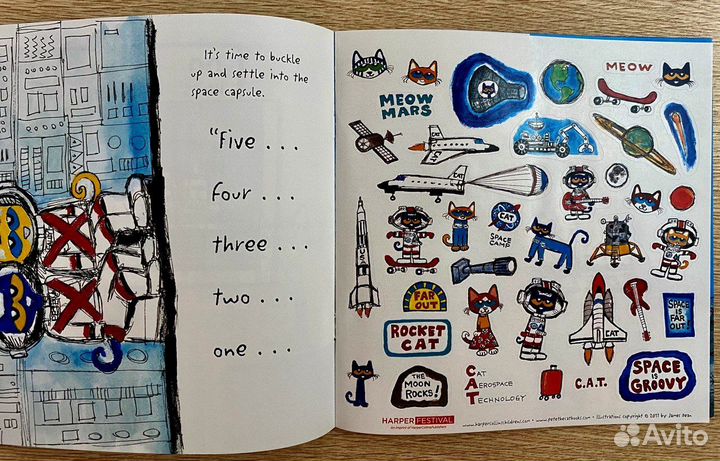 It's time to buckle
up and settle into the
space capsule.
"Five . . .
four . . .
three . . .
two . . .
one . . .
MEOW
MEOW
MARS
CAT
CAT
SPACE
CAMP
FAR
OUT
ROCKET
CAT
THE
MOON
ROCKS!
CAT
AEROSPACE
TECHNOLOGY
CAT
C.A.T.
SPACE
IS FAR
OUT!
SPACE
IS
GROOVY
HARPER FESTIVAL
An Imprint of HarperCollinsPublishers
www.harpercollinschildrens.com • www.petethecatbooks.com • illustrations copyright © 2017 by James Dean
Avito